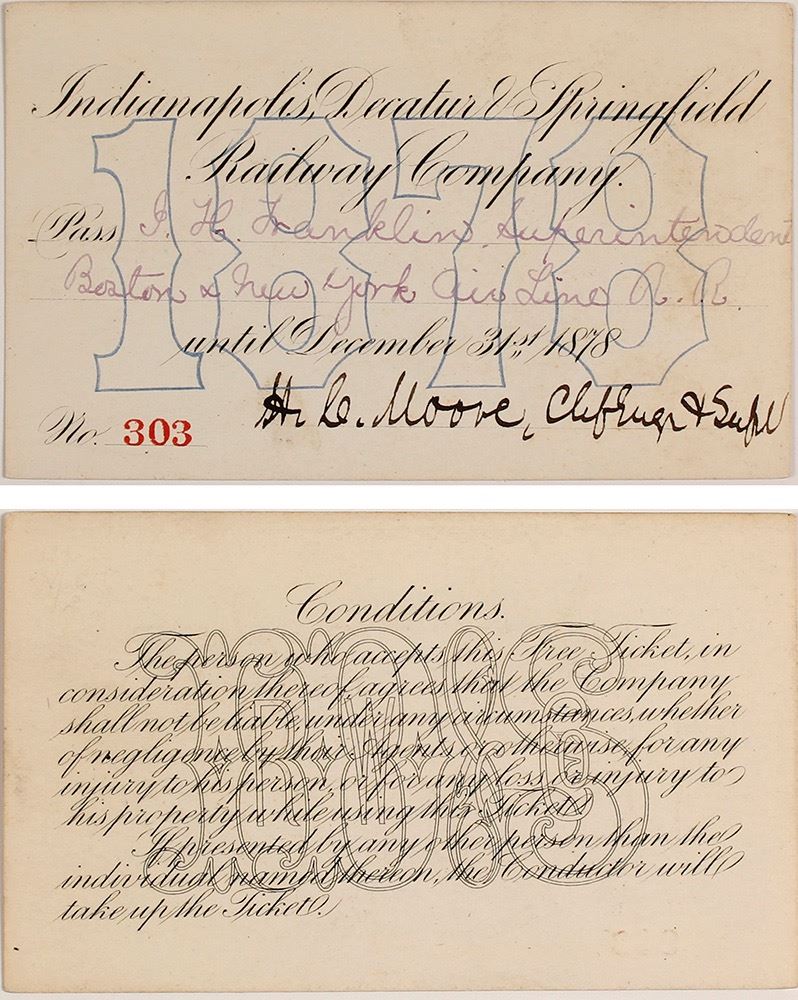 Indianapolis, Decatur & Springfield
Railway Company.
1878
Pass J. H. Franklin, Superintendent
Boston & New York Air Line R. R.
until December 31st 1878
No. 303
H. C. Moore, Chf Engr & Supt
Conditions.
The person who accepts this Free Ticket, in
consideration thereof, agrees that the Company
shall not be liable, under any circumstances, whether
of negligence by their Agents or otherwise, for any
injury to his person, or for any loss or injury to
his property while using this Ticket.
If presented by any other person than the
individual named thereon, the Conductor will
take up the Ticket.